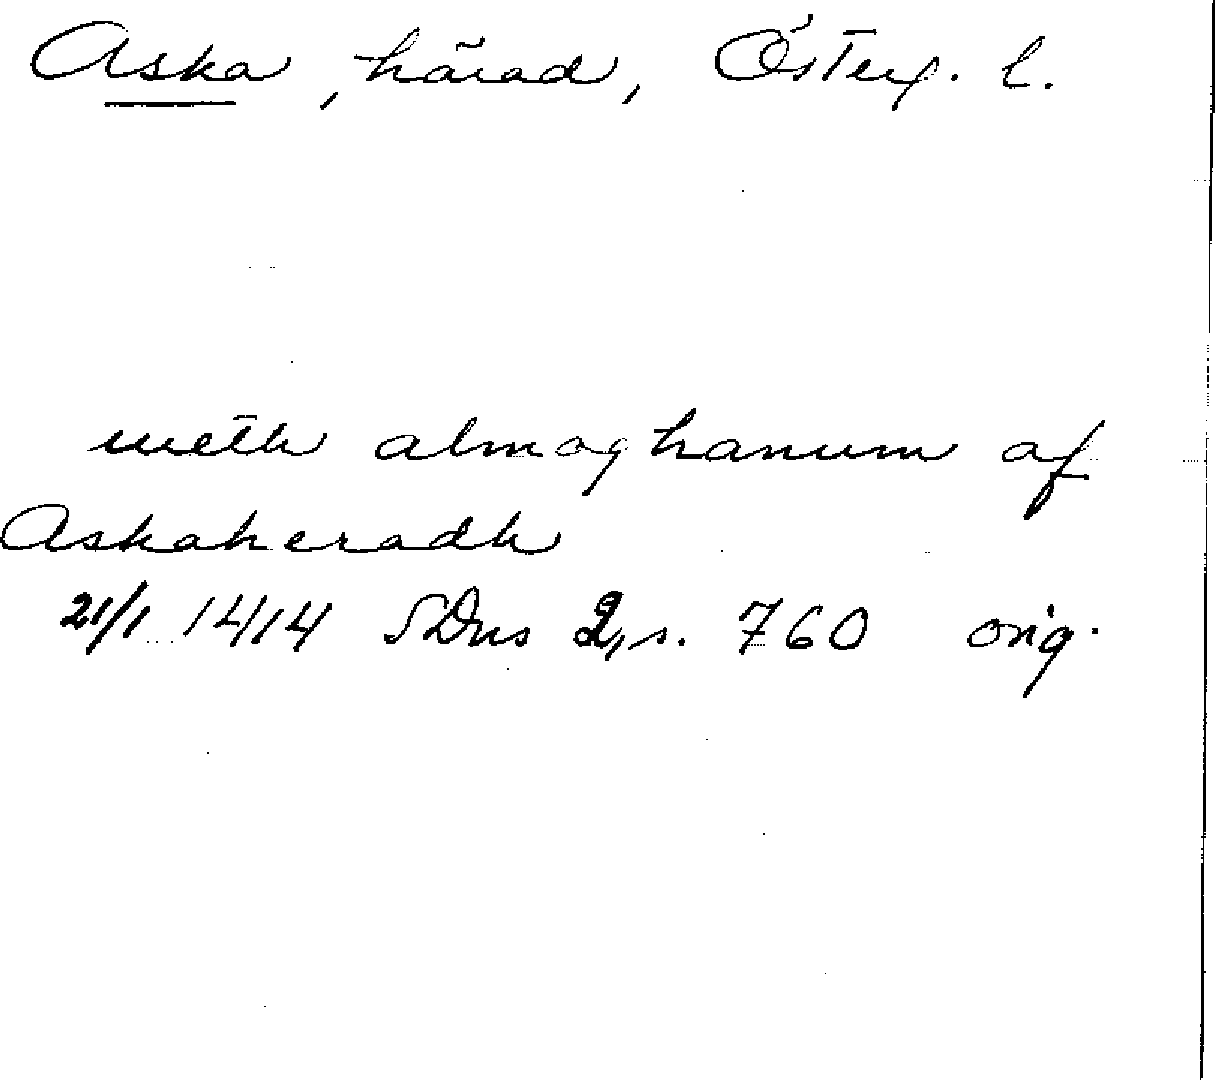 Aska, härad, Österg. l.
meth almoghanum af
Askaheradh
21/1 1414 SDns 2, s. 760 orig.